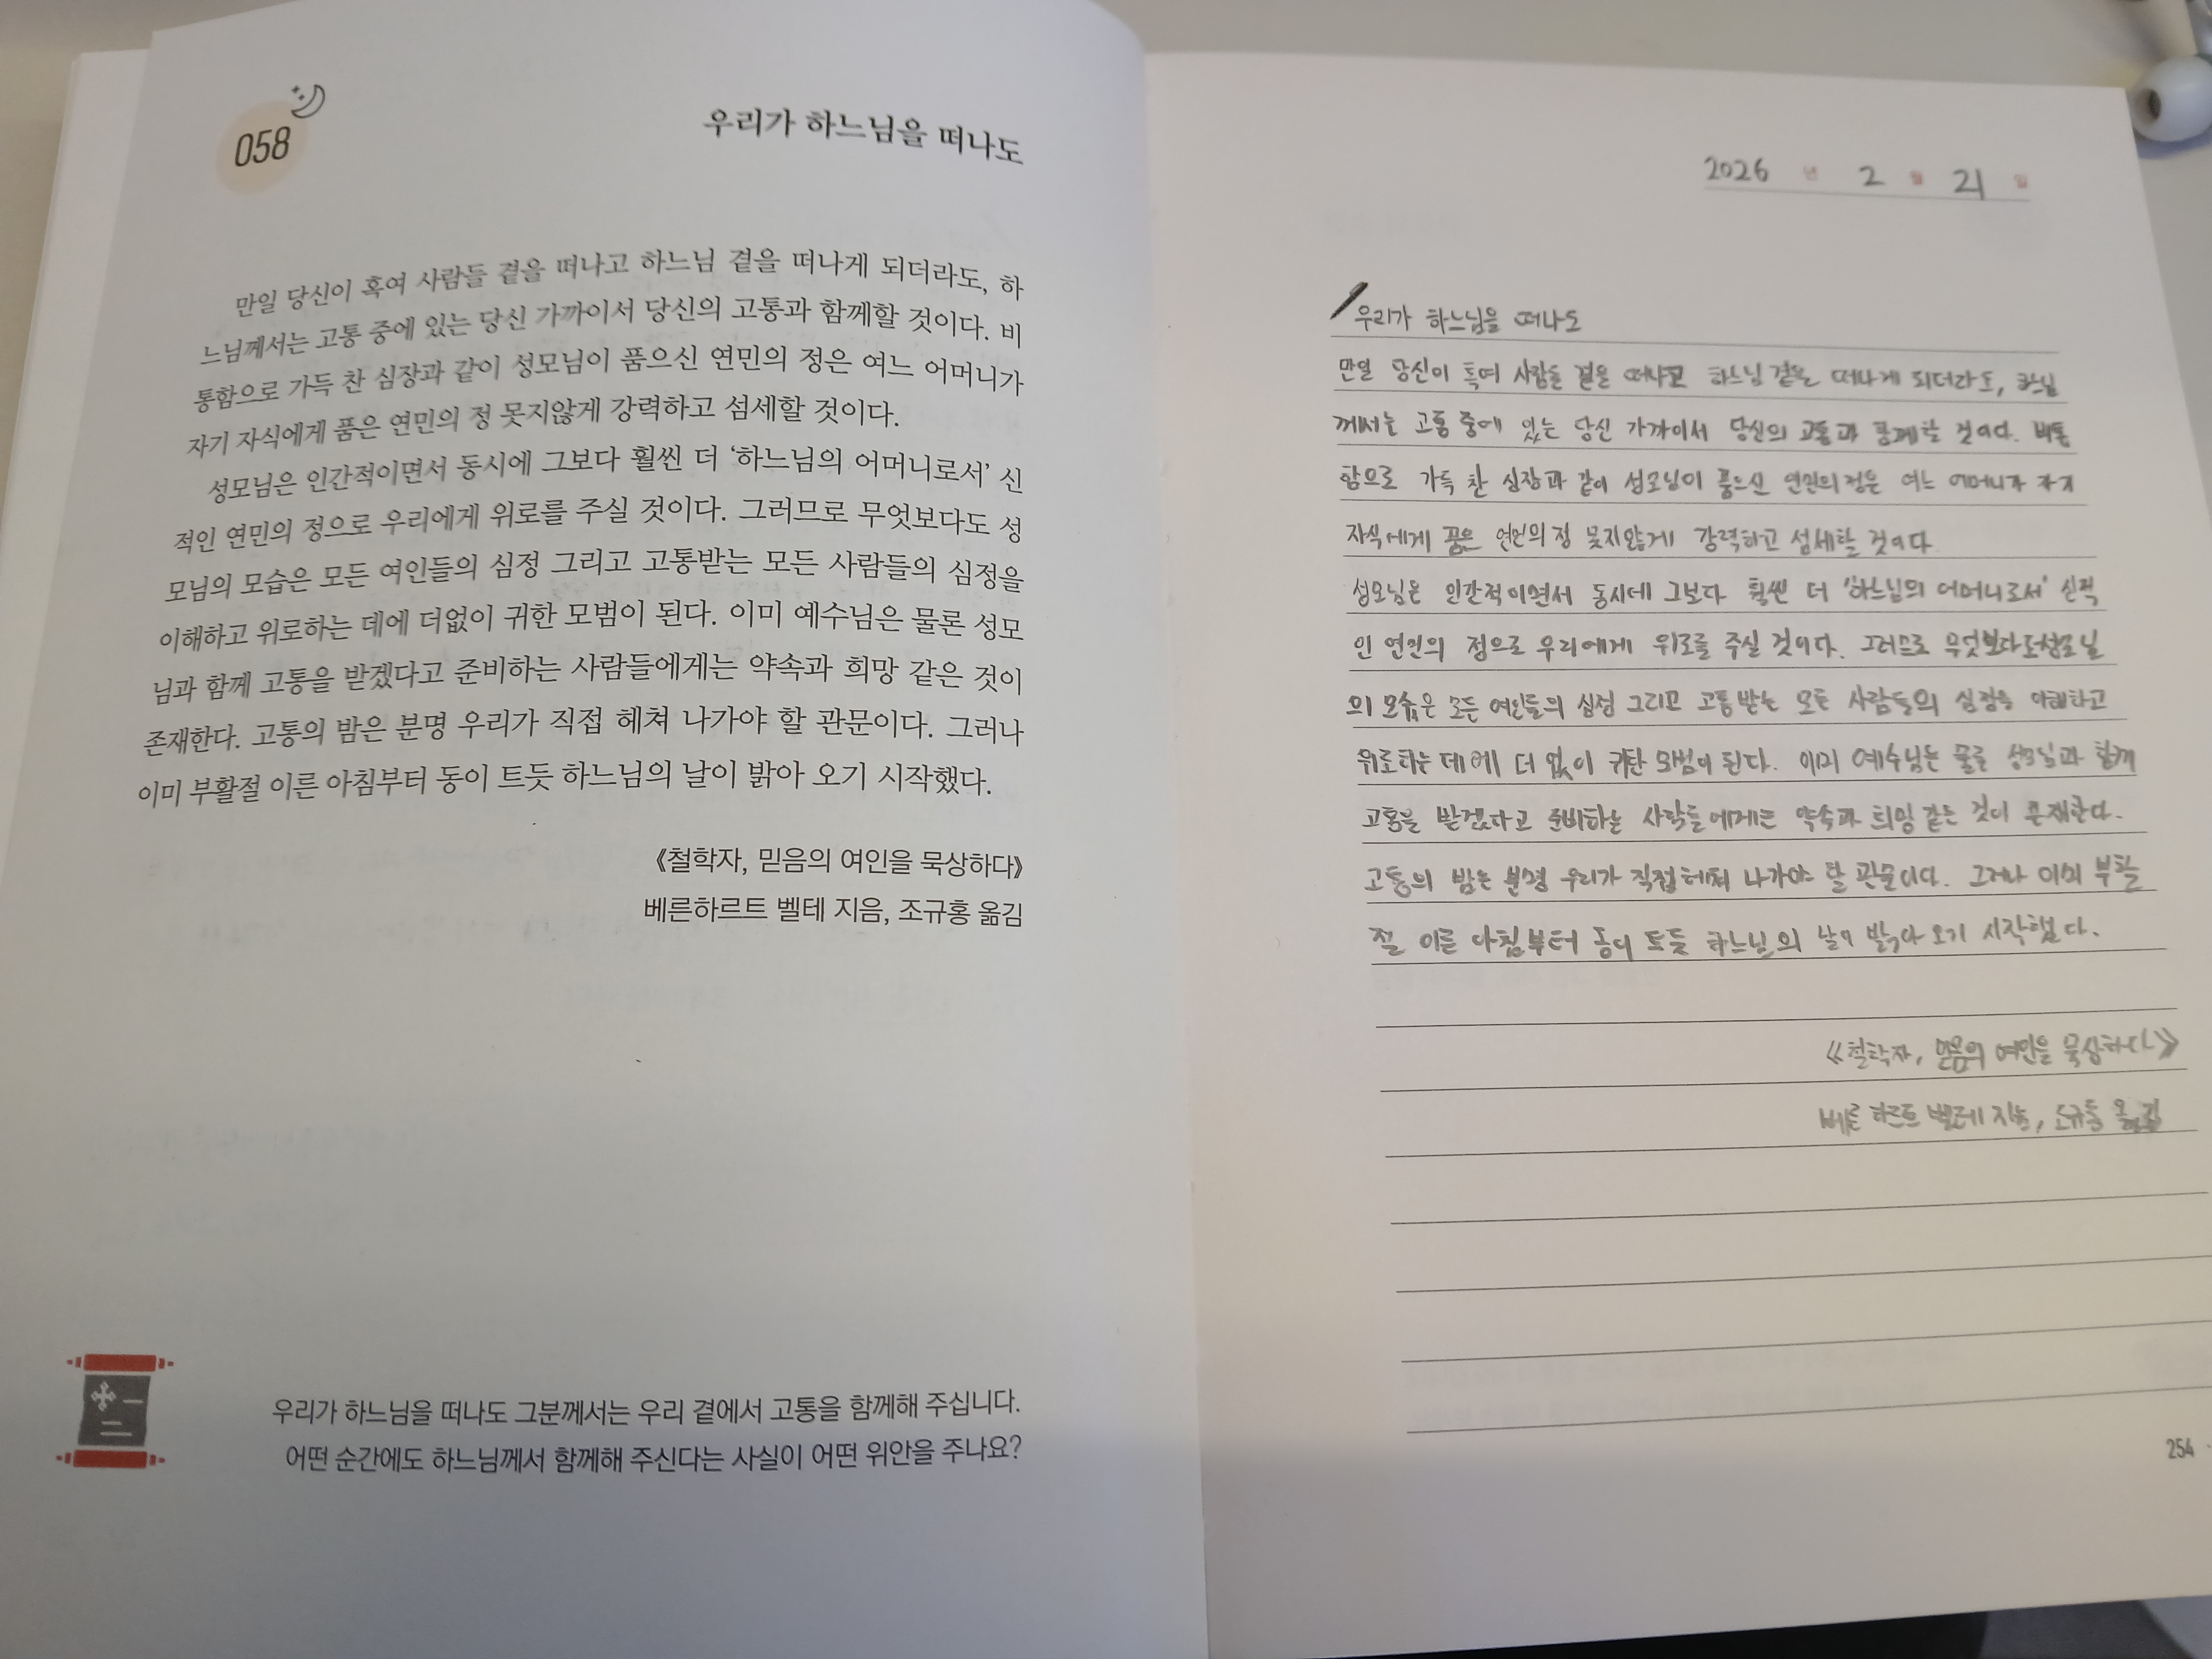 058
우리가 하느님을 떠나도
만일 당신이 혹여 사람들 곁을 떠나고 하느님 곁을 떠나게 되더라도, 하
느님께서는 고통 중에 있는 당신 가까이서 당신의 고통과 함께할 것이다. 비
통함으로 가득 찬 심장과 같이 성모님이 품으신 연민의 정은 여느 어머니가
자기 자식에게 품은 연민의 정 못지않게 강력하고 섬세할 것이다.
성모님은 인간적이면서 동시에 그보다 훨씬 더 ‘하느님의 어머니로서’ 신
적인 연민의 정으로 우리에게 위로를 주실 것이다. 그러므로 무엇보다도 성
모님의 모습은 모든 여인들의 심정 그리고 고통받는 모든 사람들의 심정을
이해하고 위로하는 데에 더없이 귀한 모범이 된다. 이미 예수님은 물론 성모
님과 함께 고통을 받겠다고 준비하는 사람들에게는 약속과 희망 같은 것이
존재한다. 고통의 밤은 분명 우리가 직접 헤쳐 나가야 할 관문이다. 그러나
이미 부활절 이른 아침부터 동이 트듯 하느님의 날이 밝아 오기 시작했다.
《철학자, 믿음의 여인을 묵상하다》
베른하르트 벨테 지음, 조규홍 옮김
우리가 하느님을 떠나도 그분께서는 우리 곁에서 고통을 함께해 주십니다.
어떤 순간에도 하느님께서 함께해 주신다는 사실이 어떤 위안을 주나요?
2026 년 2 월 21 일
우리가 하느님을 떠나도
만일 당신이 혹여 사람들 곁을 떠나고 하느님 곁을 떠나게 되더라도, 하느님
께서는 고통 중에 있는 당신 가까이서 당신의 고통과 함께할 것이다. 비통
함으로 가득 찬 심장과 같이 성모님이 품으신 연민의 정은 여느 어머니가 자기
자식에게 품은 연민의 정 못지않게 강력하고 섬세할 것이다
성모님은 인간적이면서 동시에 그보다 훨씬 더 '하느님의 어머니로서' 신적
인 연민의 정으로 우리에게 위로를 주실 것이다. 그러므로 무엇보다도 성모님
의 모습은 모든 여인들의 심정 그리고 고통받는 모든 사람들의 심정을 이해하고
위로하는 데에 더 없이 귀한 모범이 된다. 이미 예수님은 물론 성모님과 함께
고통을 받겠다고 준비하는 사람들에게는 약속과 희망 같은 것이 존재한다.
고통의 밤은 분명 우리가 직접 헤쳐 나가야 할 관문이다. 그러나 이미 부활
절 이른 아침부터 동이 트듯 하느님의 날이 밝아 오기 시작했다.
《철학자, 믿음의 여인을 묵상하다》
베른하르트 벨테 지음, 조규홍 옮김
254